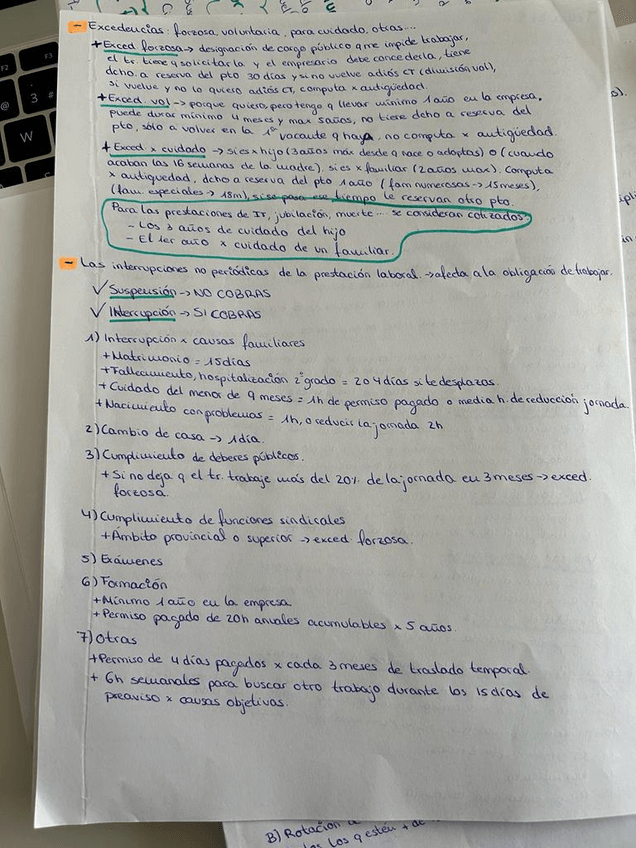 - Excedencias: forzosa, voluntaria, para cuidado, otras...
+ Exced forzosa → designación de cargo público q me impide trabajar,
el tr. tiene q solicitarla y el empresario debe concederla, tiene
dcho. a reserva del pto 30 días y si no vuelve adiós CT (dimisión vol),
si vuelve y no lo quiero adiós CT, computa x antigüedad.
+ Exced. vol → porque quiero, pero tengo q llevar mínimo 1 año en la empresa,
puede durar mínimo 4 meses y max 5 años, no tiene dcho a reserva del
pto, sólo a volver en la 1ª vacante q haya, no computa x antigüedad.
+ Exced x cuidado → si es x hijo (3 años max desde q nace o adoptas) o (cuando
acaban las 16 semanas de la madre). si es x familiar (2 años max). Computa
x antiguedad, dcho a reserva del pto 1 año (fam numerosas → 15 meses),
(fam. especiales → 18m), si se pasa ese tiempo le reservan otro pto.
Para las prestaciones de IT, jubilación, muerte... se consideran cotizados:
- Los 3 años de cuidado del hijo
- El 1er año x cuidado de un familiar.
- Las interrupciones no periódicas de la prestación laboral. → afecta a la obligación de trabajar.
✓ Suspensión → NO COBRAS
✓ Interrupción → SI COBRAS
1) Interrupción x causas familiares
+ Matrimonio = 15 días
+ Fallecimiento, hospitalización 2º grado = 2 o 4 días si te desplazas.
+ Cuidado del menor de 9 meses = 1h de permiso pagado o media h. de reducción jornada.
+ Nacimiento con problemas = 1h, o reducir la jornada 2h
2) Cambio de casa → 1 día.
3) Cumplimiento de deberes públicos.
+ Si no deja q el tr. trabaje más del 20% de la jornada en 3 meses → exced.
forzosa.
4) Cumplimiento de funciones sindicales
+ Ámbito provincial o superior → exced forzosa.
5) Exámenes
6) Formación
+ Mínimo 1 año en la empresa
+ Permiso pagado de 20h anuales acumulables x 5 años.
7) Otras
+ Permiso de 4 días pagados x cada 3 meses de traslado temporal
+ 6h semanales para buscar otro trabajo durante los 15 días de
preaviso x causas objetivas.
B) Rotación
los q estén + de